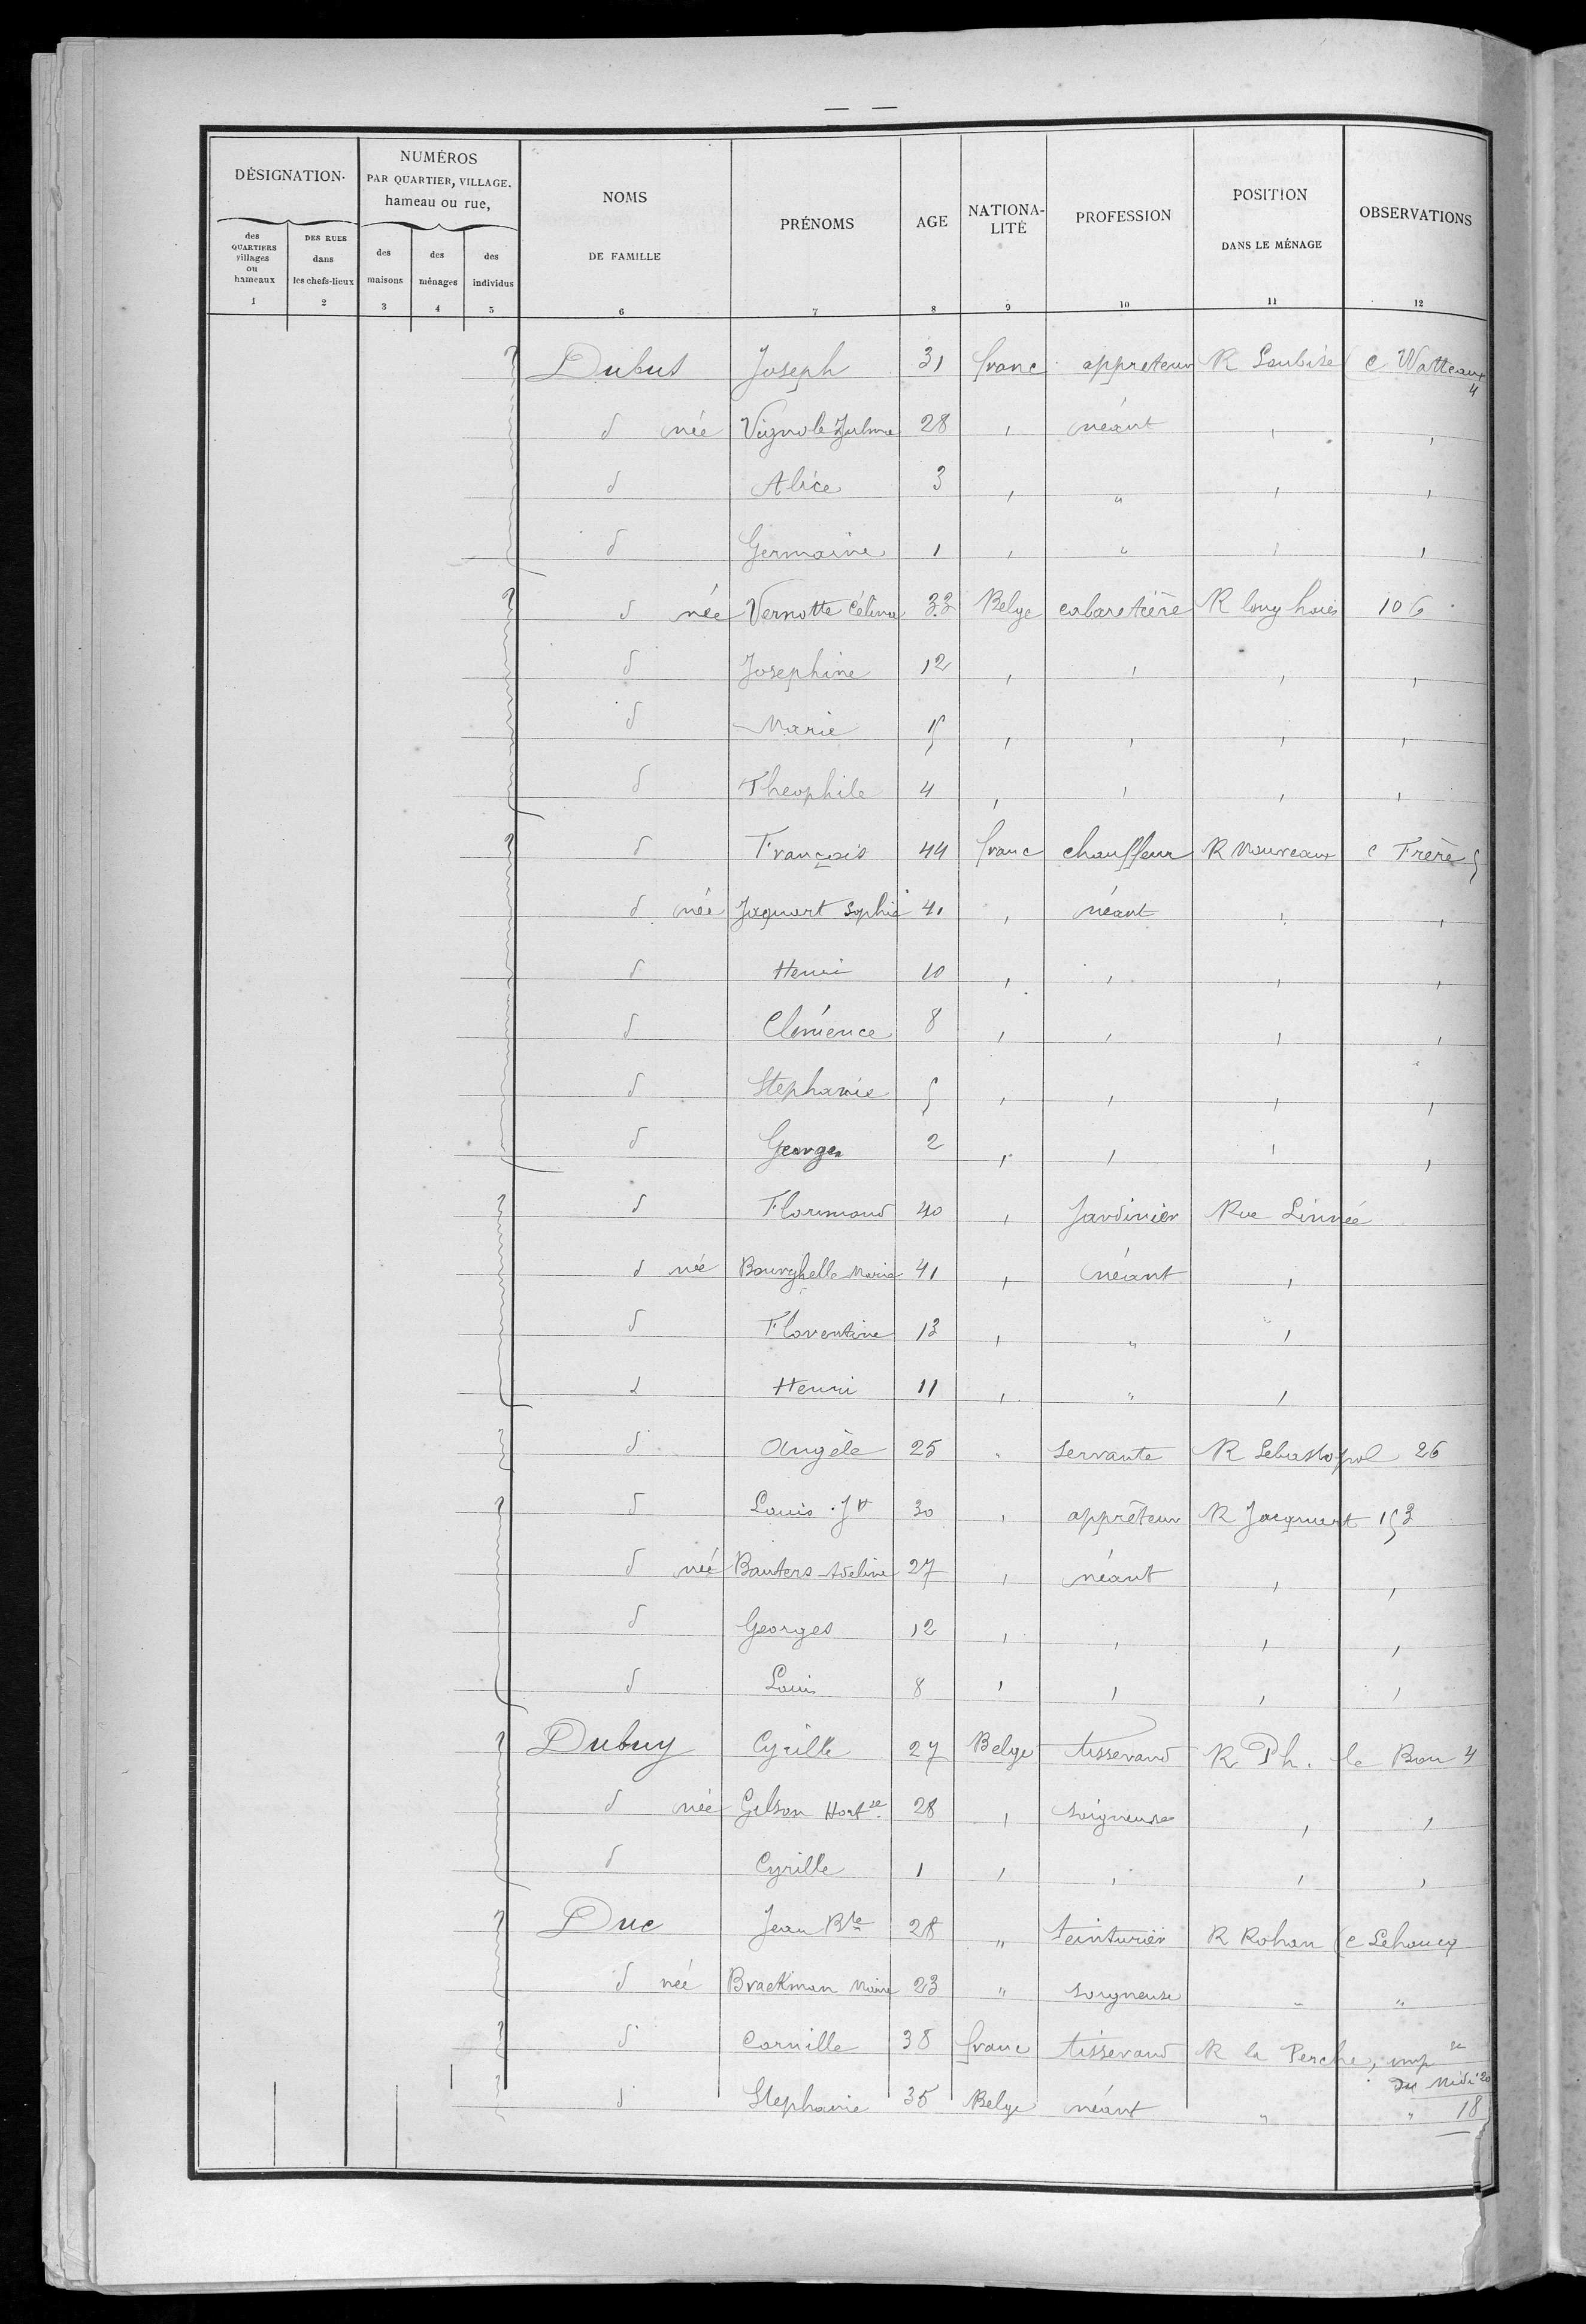 DÉSIGNATION.
NUMÉROS
PAR QUARTIER, VILLAGE.
hameau ou rue,
NOMS
DE FAMILLE
PRÉNOMS
AGE
NATIONA-
LITÉ
PROFESSION
POSITION
DANS LE MÉNAGE
OBSERVATIONS
des
QUARTIERS
villages
ou
hameaux
DES RUES
dans
les chefs-lieux
des
maisons
des
ménages
des
individus
1 2 3 4 5 6 7 8 9 10 11 12
Dubus Joseph 31 franc appreteur R Soubise c Watteaux 4
d née Vignole Zulma 28 , néant , ,
d Alice 3 , " , ,
d Germaine 1 , " , ,
d née Vernotte Célina 33 Belge cabaretière R long haies 106
d Josephine 12 , , , ,
d Marie 5 , , , ,
d Theophile 4 , , , ,
d François 44 franc chauffeur R Mouveaux c Frère 5
d née Jaquart Sophie 41 , néant , ,
d Henri 10 , , , ,
d Clémence 8 , , , ,
d Stephanie 5 , , , ,
d Georges 2 , , , ,
d Florimond 40 , Jardinier Rue Linnée
d née Bourghelle Marie 41 , néant ,
d Florentine 13 , " ,
d Henri 11 , " ,
d Angèle 25 " servante R Sebastopol 26
d Louis Jh 30 , apprêteur R Jacquart 153
d née Bauters Adeline 27 , néant , ,
d Georges 12 , , , ,
d Louis 8 , , , ,
Dubuy Cyrille 27 Belge tisserand R Ph. le Bon 4
d née Gilson Hortse 28 , soigneuse , ,
d Cyrille 1 , , , ,
Duc Jean Bte 28 " teinturier R Rohan (c Lehoucq
d née Brackman Marie 23 " soigneuse " "
d Cornille 38 franc tisserand R la Perche, imp
du Midi 20
d Stephanie 35 Belge néant " " 18